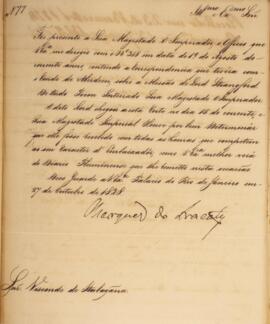 N.º 77
Ill.mo e Ex.mo Snr
Foi presente a Sua Magestade o Imperador o Officio que
V. Ex.a me dirigio com N.º 258 em data de 1.º de Agosto do
corrente anno, contendo a correspondencia que tivera com o
Conde de Aberdeen sobre a Missão de Lord Strangford.
De tudo Ficou Inteirado Sua Magestade o Imperador.
O dito Lord chegou a esta Corte no dia 16 do corrente, e
Sua Magestade Imperial Houve por bem Determinar
que elle fosse recebido com todas as honras que competem
ao seu Caracter d'Embaixador, como V. Ex.a melhor verá
do Diario Fluminense que lhe remetto nesta occasião.
Deos Guarde a V. Ex.a Palacio do Rio de Janeiro em
27 de Outubro de 1828.
Marquez do Aracaty
Snr. Visconde de Itabayana.